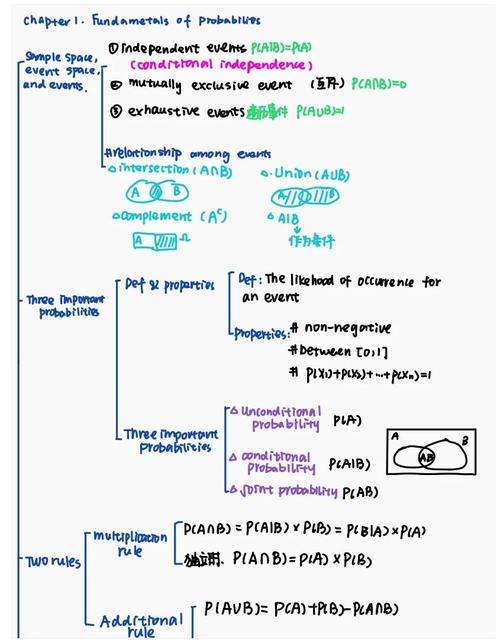 Chapter 1. Fundametals of Probabilities
Sample space,
event space,
and events.
① independent events P(A|B)=P(A)
(conditional independence)
② mutually exclusive event (互斥) P(A∩B)=0
③ exhaustive events 遍历事件 P(A∪B)=1
#relationship among events
△intersection(A∩B)
△.Union(A∪B)
A B
A B
△complement(Aᶜ)
△ A|B
A Ω
作为条件
Three important
probabilities
Def & properties
Def: The likehood of occurrence for
an event
properties: # non-negative
#between [0,1]
# P(X₁)+P(X₂)+…+P(Xₙ)=1
Three important
probabilities
△ Unconditional
probability P(A)
△ conditional
probability P(A|B)
△ joint probability P(AB)
A B
AB
Two rules
multiplication
rule
P(A∩B)=P(A|B)×P(B)=P(B|A)×P(A)
P(A∩B)=P(A)×P(B)
Additional
rule
P(A∪B)=P(A)+P(B)-P(A∩B)